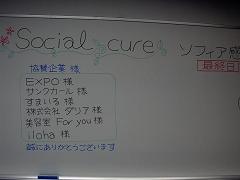 Social cure
ソフィア感
最終日
協賛企業 様
EXPO 様
サンクカール 様
すまいる 様
株式会社 ダリア 様
美容室 For you 様
iloha 様
誠にありがとうございます